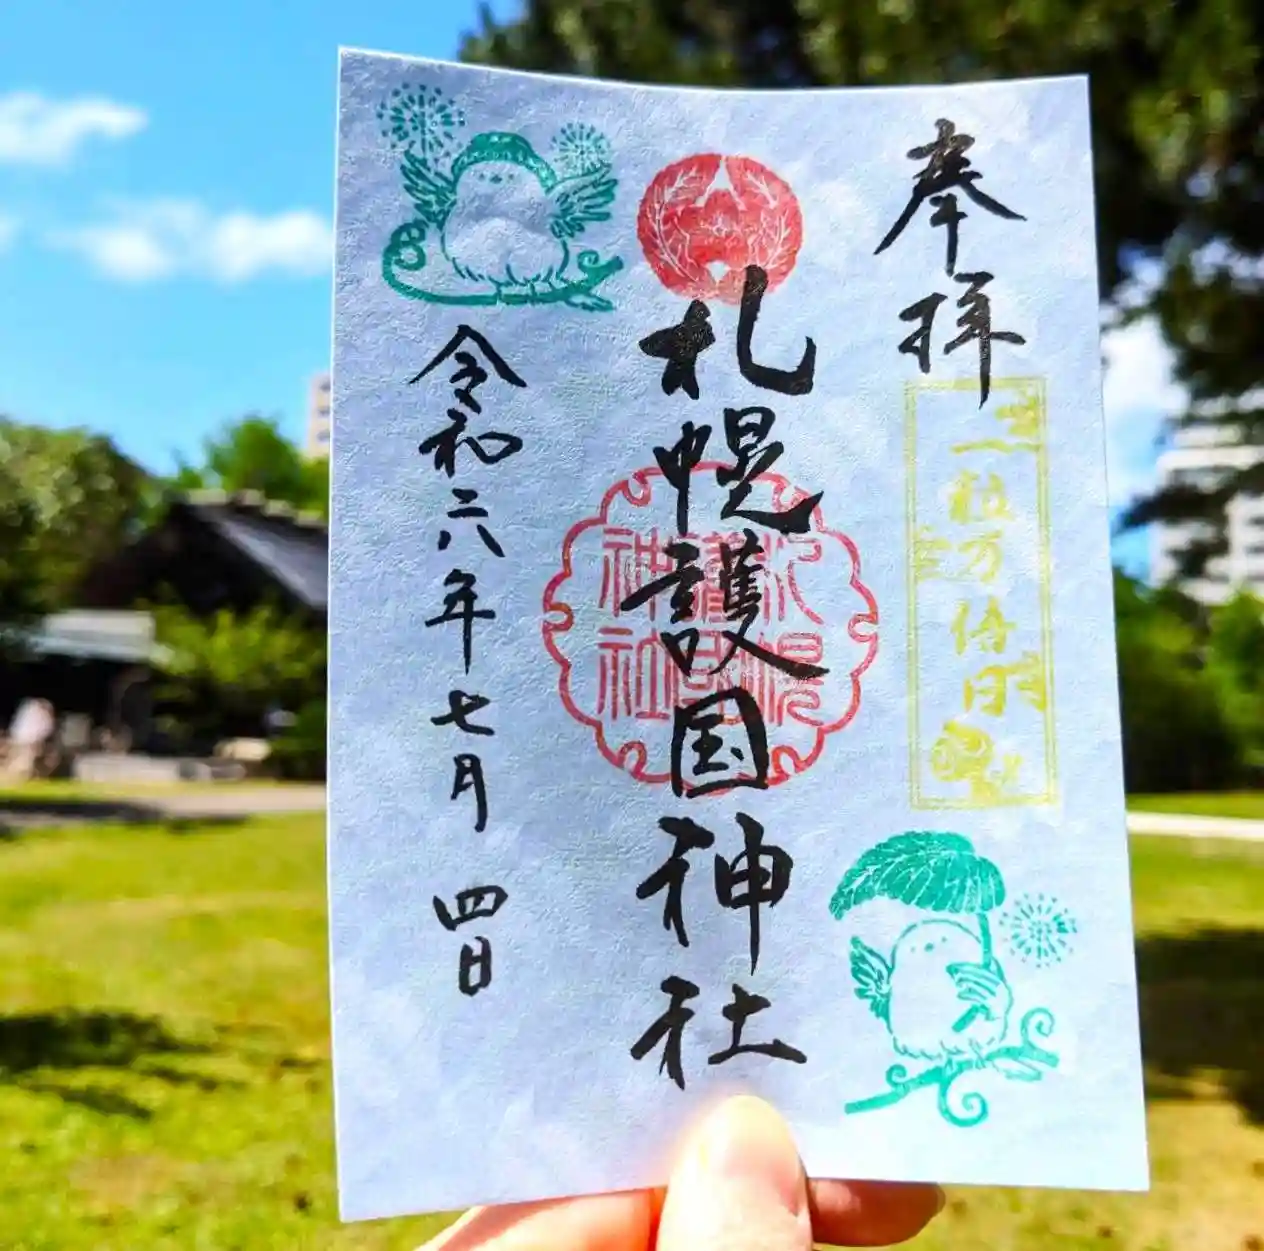 奉拝
一粒万倍日
札幌護国神社
札幌
護国
神社
令和六年七月四日